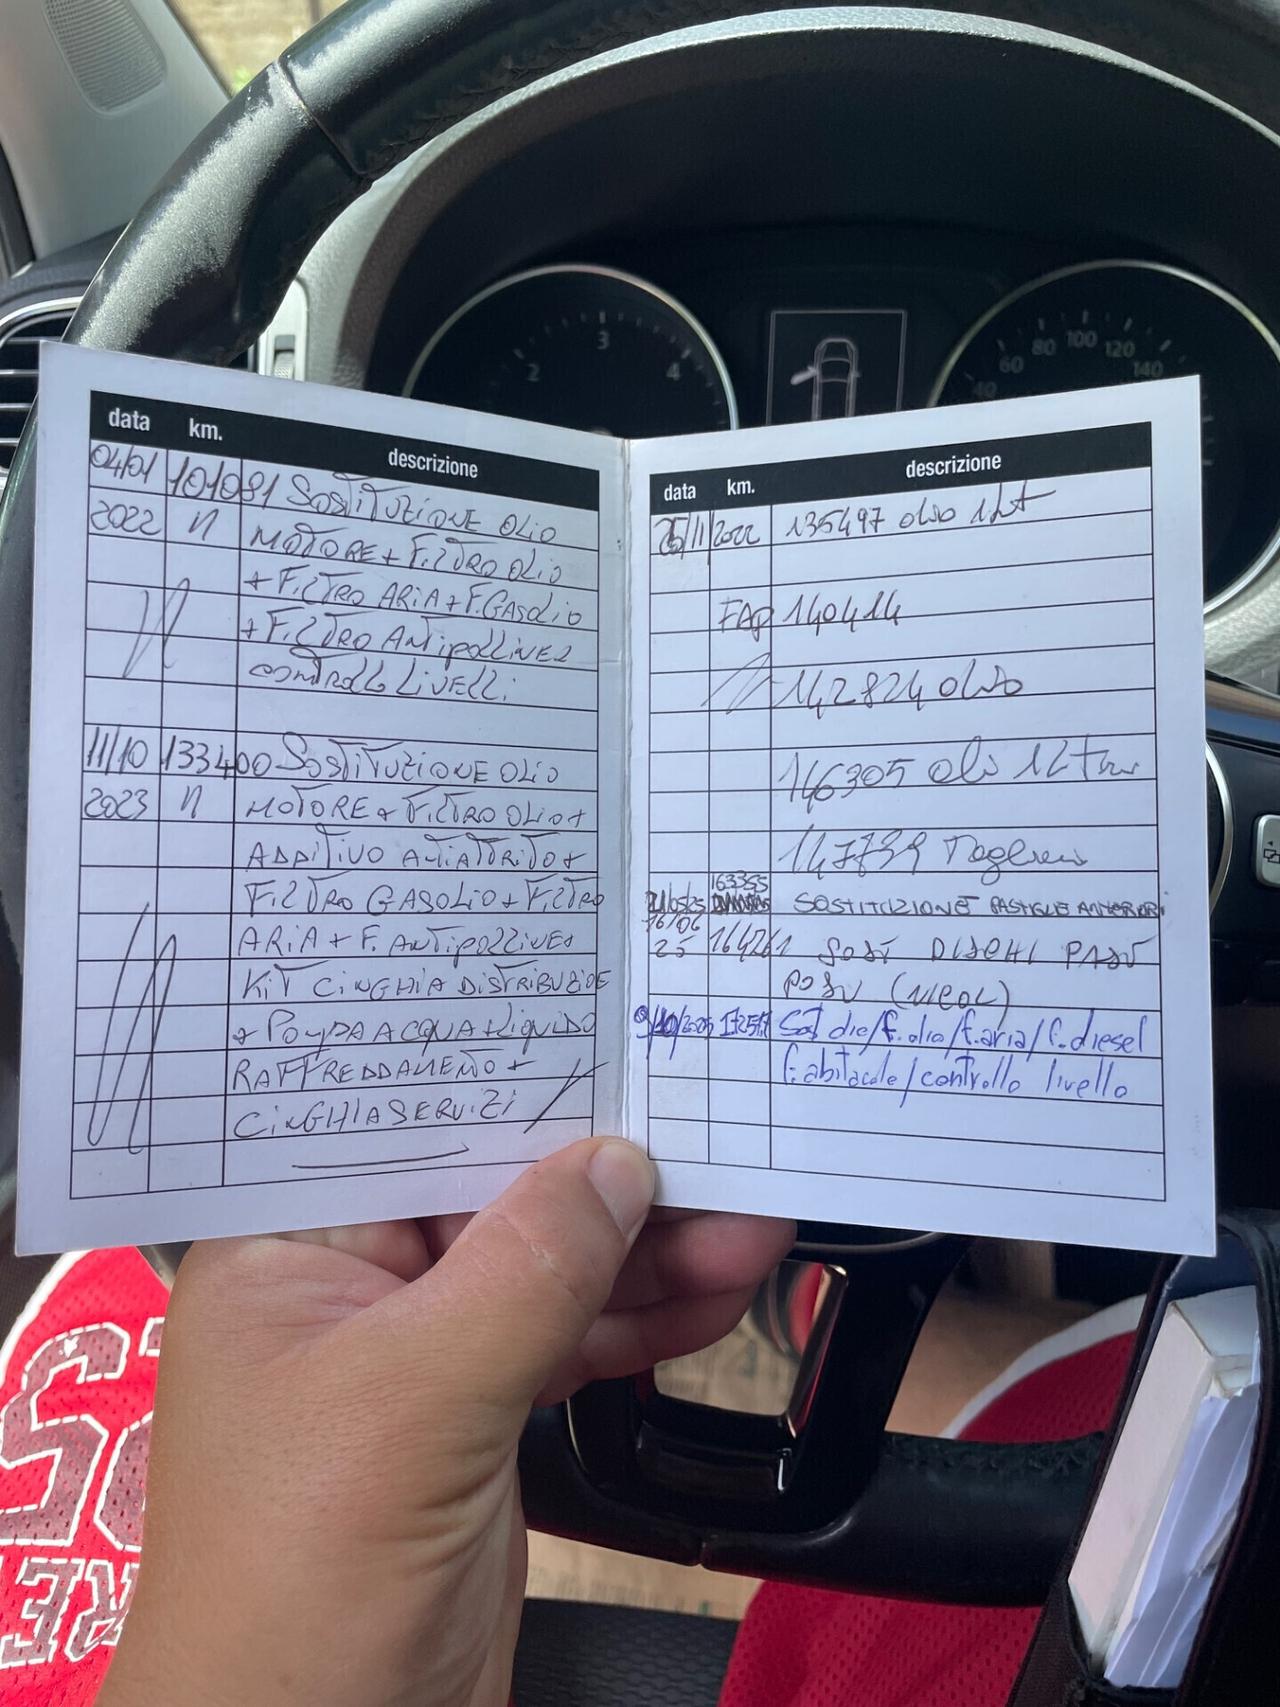 data km. descrizione
04/01 101091 SOSTITUZIONE OLIO
2022 " MOTORE + FILTRO OLIO
+ FILTRO ARIA + F. GASOLIO
+ FILTRO ANTIPOLLINE
CONTROLLO LIVELLI
11/10 133400 SOSTITUZIONE OLIO
2023 " MOTORE + FILTRO OLIO +
ADDITIVO
FILTRO GASOLIO + FILTRO
ARIA + F. ANTIPOLLINE +
KIT CINGHIA DISTRIBUZIONE
+ POMPA ACQUA + LIQUIDO
RAFFREDDAMENTO +
CINGHIA SERVIZI
data km. descrizione
/11/2022 135497 olio 1Lt
FAP 140414
142824 olio
146305 olio 1LT
147739 Tagliando
163355
21/05/25 SOSTITUZIONE PASTIGLIE ANTERIORI
16/06
25 164261 SOST DISCHI PAST
POST
9/10/2025 Sost olio/f.olio/f.aria/f.diesel
f.abitacolo/controllo livello
2 3 4
40 60 80 100 120 140